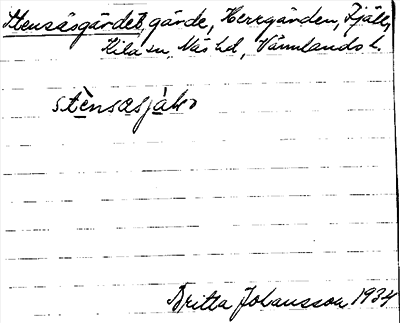 Stensåsgärdet, gärde, Herrgården, Fjäll,
Kila sn, Näs hd, Värmlands l.
stènsasjàḷo
Britta Johansson 1934